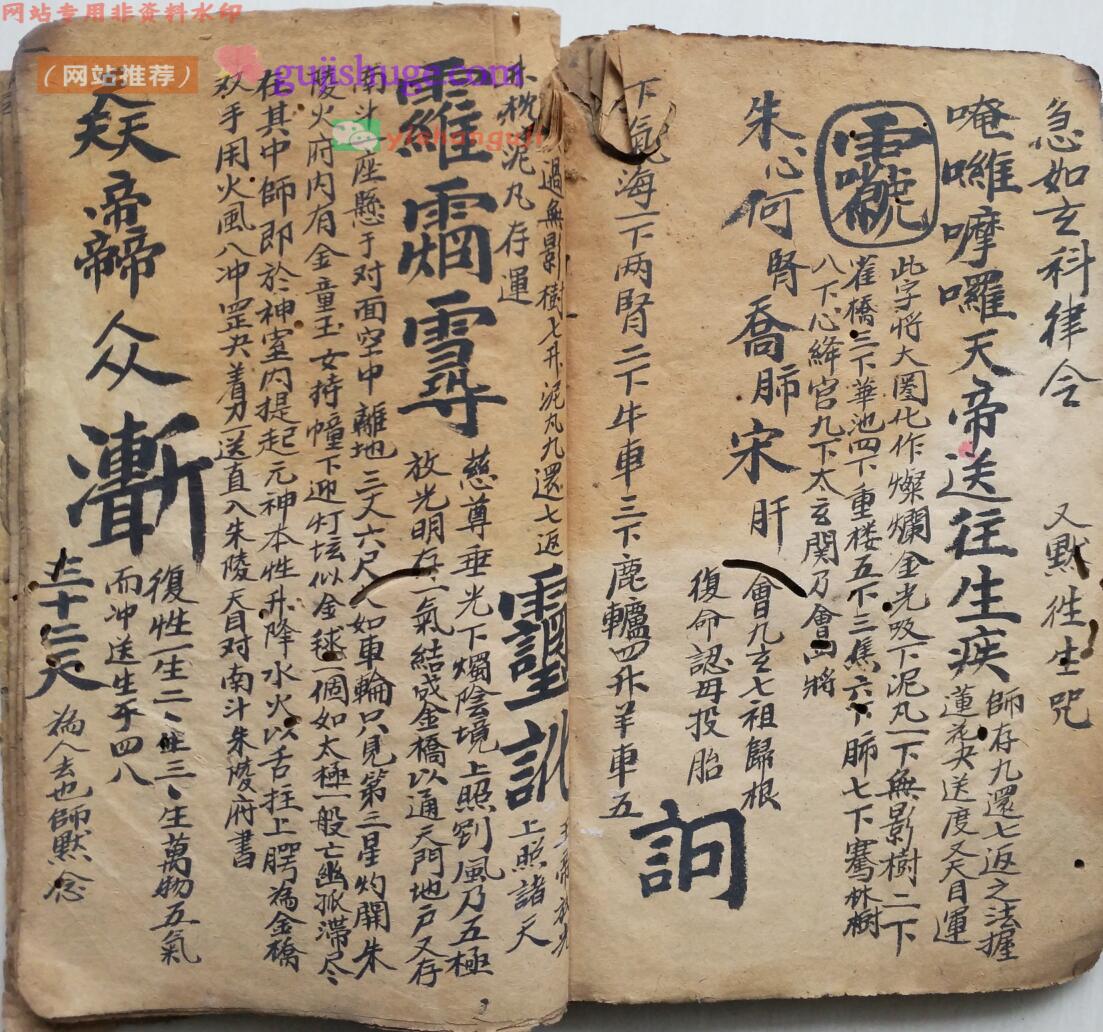 网站专用非资料水印
（网站推荐）
gujishuge.com
yishanguji
急如玄科律令 又默徃生咒
唵囉嘇囉天帝送往生疾 師存九還七返之法握
蓮花夬送度又天目運
此字將大圈化作燦爛金光吸下泥凡一下無影樹二下
雀橋三下華池四下重楼五下三焦六下肺七下騫林樹
八下心絳宫九下太玄関乃會四將
朱心何腎喬肺宋肝 會九玄七祖歸根
復命認母投胎 訶
下氣海一下两腎二下牛車三下鹿轤四升羊車五
升枕 過無影樹七升泥凡九還七返
泥凡存運
訛 上照諸天
慈尊垂光下燭陰境上照劉風乃五極
放光明存一氣結成金橋以通天門地戸又存
南斗一座懸于对面空中離地三丈六尺 如車輪只見第三星灼開朱
陵火府内有金童玉女持幢下迎灯坛似金毬一個如太極一般亡幽孤滯尽
在其中師即於神室内提起元神本性升降水火以舌拄上腭為金橋
手用火風八冲罡夬着力一送直入朱陵天目对南斗朱陵府書
众
復性一生二、生三、生萬物五氣
而冲送生于四八
三十二天 為人去也師默念